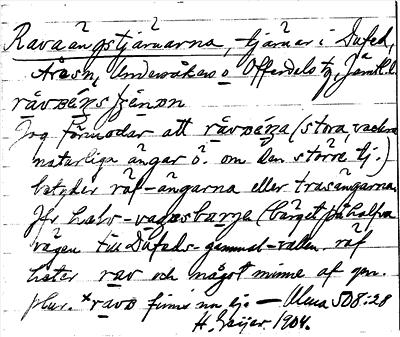 Ravaängstjärnarna, tjärnar i Dufed,
Åresn, Undersåkers o Offerdals tg, Jämtl. l.
råvaéŋs
Jag förmodar att råvaéŋa (stora, vackra
naturliga ängar ö. om den större tj.)
betyder räf-ängarna eller
Jfr halv- (berget på halva
vägen till Dufeds-gammal-vallen. räf
heter rav och något minne af gen.
plur. *rava finns nu ej. — Ulma 508:28
H. Geijer 1904.